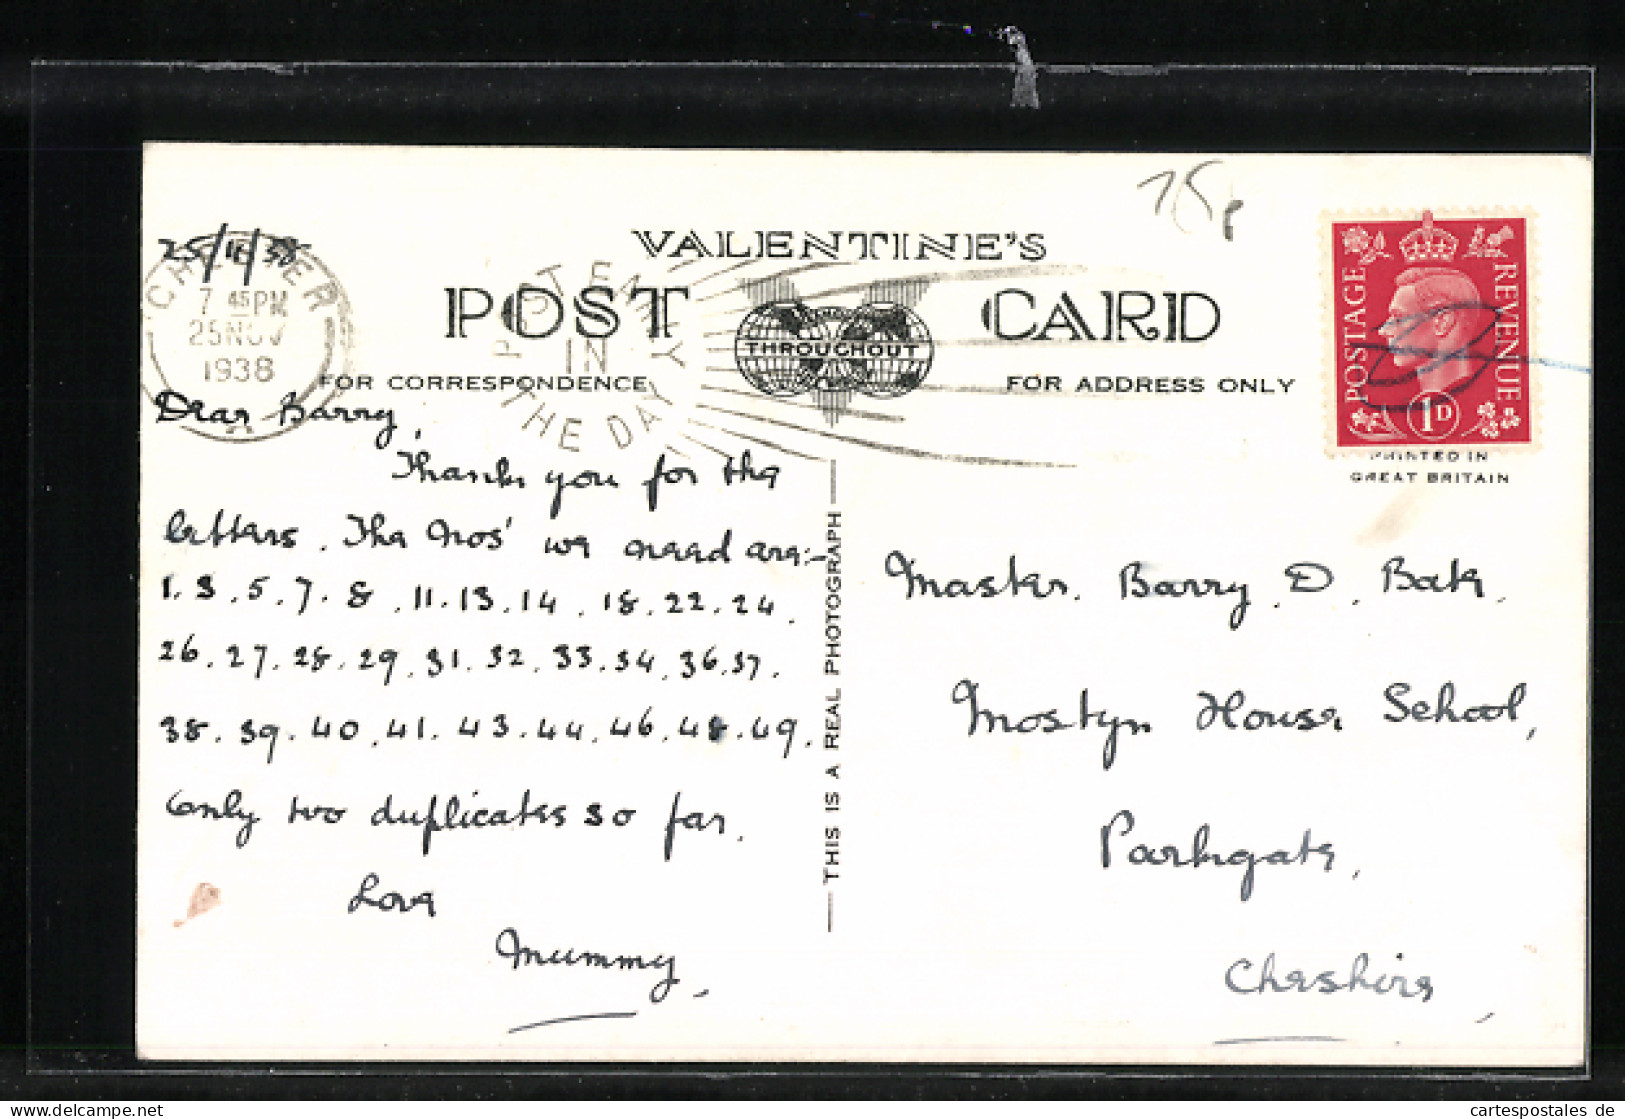 75p
VALENTINE'S
POST CARD
THROUGHOUT
FOR CORRESPONDENCE
FOR ADDRESS ONLY
25/11/38
CHESTER
7 45 PM
25 NOV
1938
POST EARLY
IN
THE DAY
POSTAGE REVENUE
1D
PRINTED IN
GREAT BRITAIN
Dear Barry,
Thanks you for the
letters. The Nos' we need are:-
1. 3. 5. 7. 8. 11. 13. 14. 18. 22. 24.
26. 27. 28. 29. 31. 32. 33. 34. 36. 37.
38. 39. 40. 41. 43. 44. 46. 48. 49.
Only two duplicates so far.
Love
Mummy.
THIS IS A REAL PHOTOGRAPH
Master. Barry. D. Bate.
Mostyn House School,
Parkgate,
Cheshire,
www.cartespostales.de